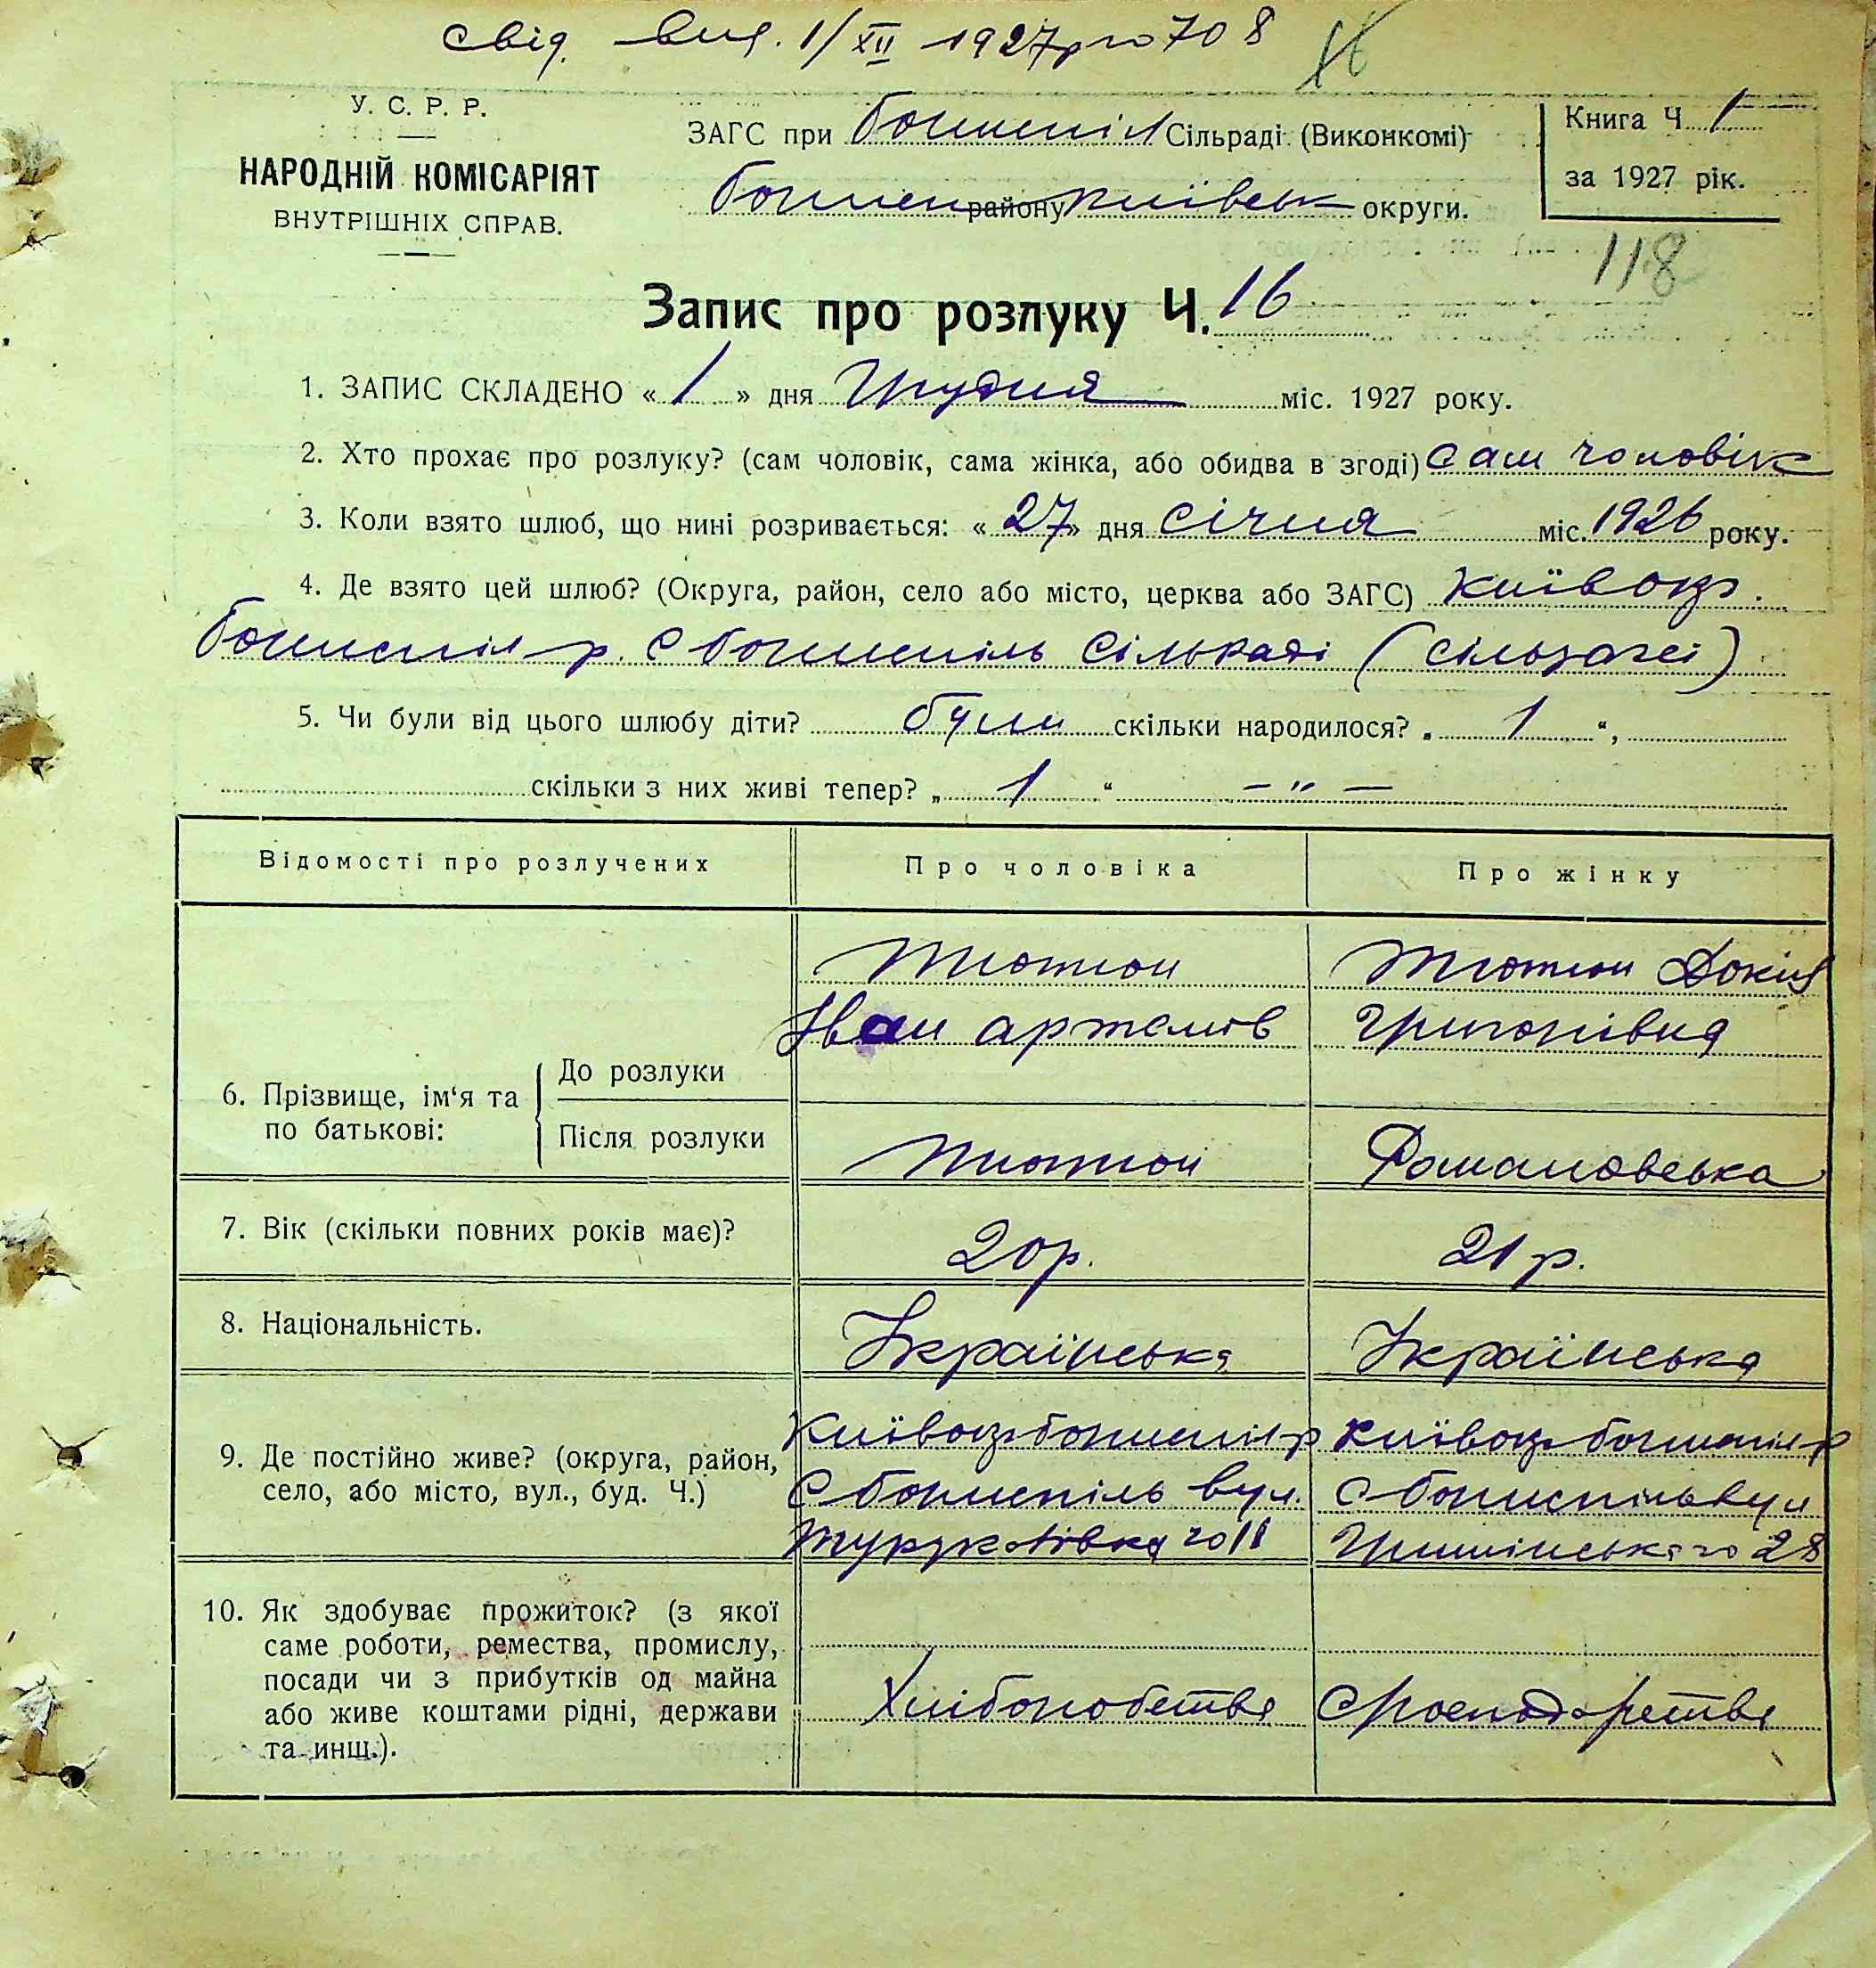 свід. вид. 1/XII 1927р го 708
У. С. Р. Р.
НАРОДНІЙ КОМІСАРІЯТ
ВНУТРІШНІХ СПРАВ.
ЗАГС при Бориспіл Сільраді (Виконкомі)
Борисп району Київськ округи.
Книга Ч. 1
за 1927 рік.
118
Запис про розлуку Ч. 16
1. ЗАПИС СКЛАДЕНО « 1 » дня Грудня міс. 1927 року.
2. Хто прохає про розлуку? (сам чоловік, сама жінка, або обидва в згоді) сам чоловік
3. Коли взято шлюб, що нині розривається: « 27 » дня січня міс. 1926 року.
4. Де взято цей шлюб? (Округа, район, село або місто, церква або ЗАГС) Київ окр.
Бориспіл р. С Бориспіль Сільраді (сільзагсі)
5. Чи були від цього шлюбу діти? були скільки народилося? „ 1 “,
скільки з них живі тепер? „ 1 “ — „ —
Відомості про розлучених
Про чоловіка
Про жінку
6. Прізвище, ім'я та
по батькові:
До розлуки
Після розлуки
Тютюн
Іван Артемів
Тютюн
Тютюн Докія
Григорівна
Романовська
7. Вік (скільки повних років має)?
20р.
21 р.
8. Національність.
Українська
Українська
9. Де постійно живе? (округа, район,
село, або місто, вул., буд. Ч.)
Київ окр Бориспіл р
С Бориспіль вул.
11
Київ окр Бориспіл р
С Бориспіль вул
28
10. Як здобуває прожиток? (з якої
саме роботи, ремества, промислу,
посади чи з прибутків од майна
або живе коштами рідні, держави
та инш.).
Хліборобства